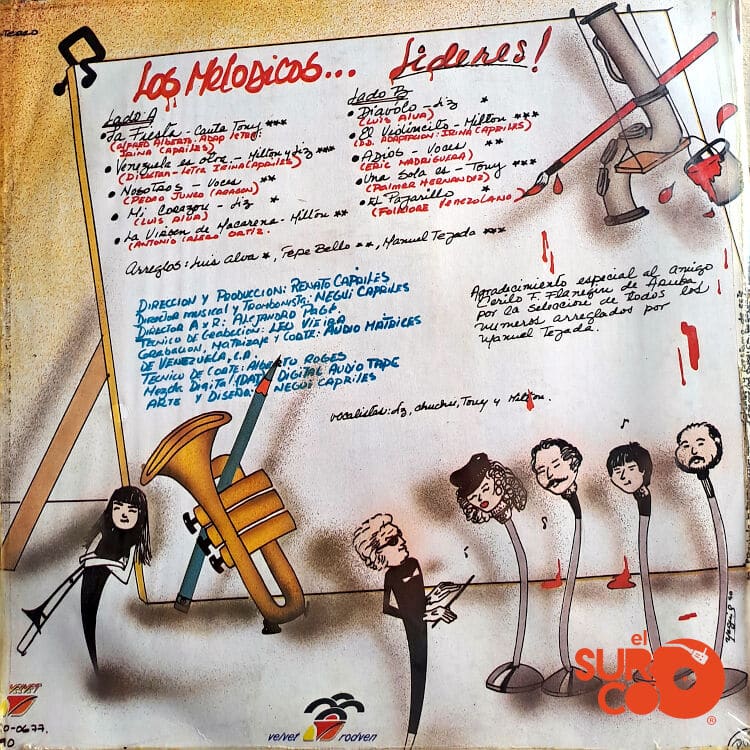 Los Melodicos... Lideres!
Lado A
• La Fiesta - Canta Tony ***
(Alfred Alberts. Adap letra:
Irina Capriles)
• Venezuela es otra. - Milton y Liz ***
(Director - Letra Irina Capriles)
• Nosotros - Voces **
(Pedro Junco (Aragon)
• Mi Corazon - Liz *
(Luis Alva)
• La Virgen de Macarena - Milton **
(Antonio Calero Ortiz.
Lado B
• Diavolo - Liz *
(Luis Alva)
• El Violincito - Milton ***
(D.D. Adaptacion: Irina Capriles)
• Adios - Voces **
(Eric Madriguera)
• Una Sola es - Tony ***
(Palmer Hernandez)
• El Pajarillo *
(Folklore Venezolano)
Arreglos: Luis Alva *, Pepe Bello **, Manuel Tejada ***
Direccion y Produccion: Renato Capriles
Director musical y Trombonista: Negui Capriles
Director A y R: Alejandro Pagé
Tecnico de Grabacion: Leo Vieira
Grabacion, Matrizaje y Corte: Audio Matrices
de Venezuela, C.A.
Tecnico de Corte: Alberto Roges
Mezcla Digital (DAT) Digital Audio Tape
Arte y Diseño: Negui Capriles
Agradecimiento especial al amigo
Cirilo F. Flanegin de Aruba
por la seleccion de todos los
numeros arreglados por
Manuel Tejada.
vocalistas: Liz, chucho, Tony y Milton.
velvet rodven
el
SURCO
®